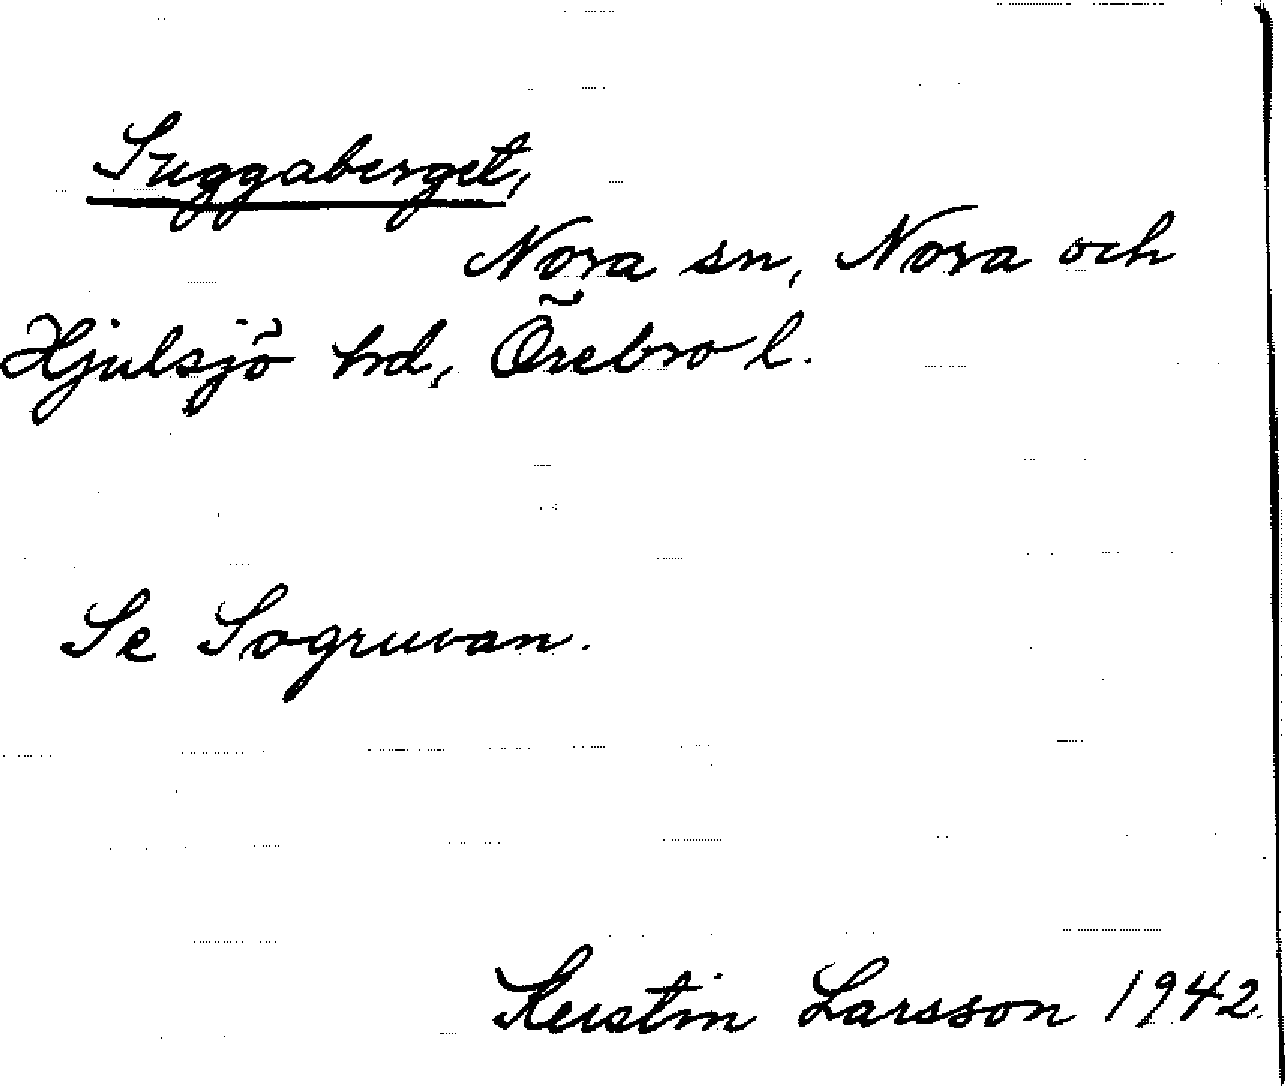 Suggaberget,
Nora sn, Nora och
Hjulsjö brd, Örebro l.
Se Sogruvan.
Kerstin Larsson 1942.